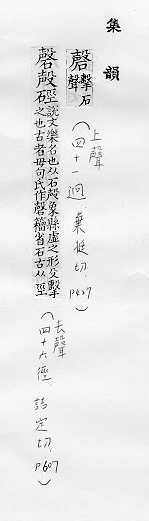 集韻
磬 擊石聲
(上聲 四十一迥 棄挺切 P427)
磬殸硜 說文樂石也以石殸象縣虡之形殳擊之也古者毋句氏作磬籒省古从巠
(去聲 四十六徑 詰定切 P607)